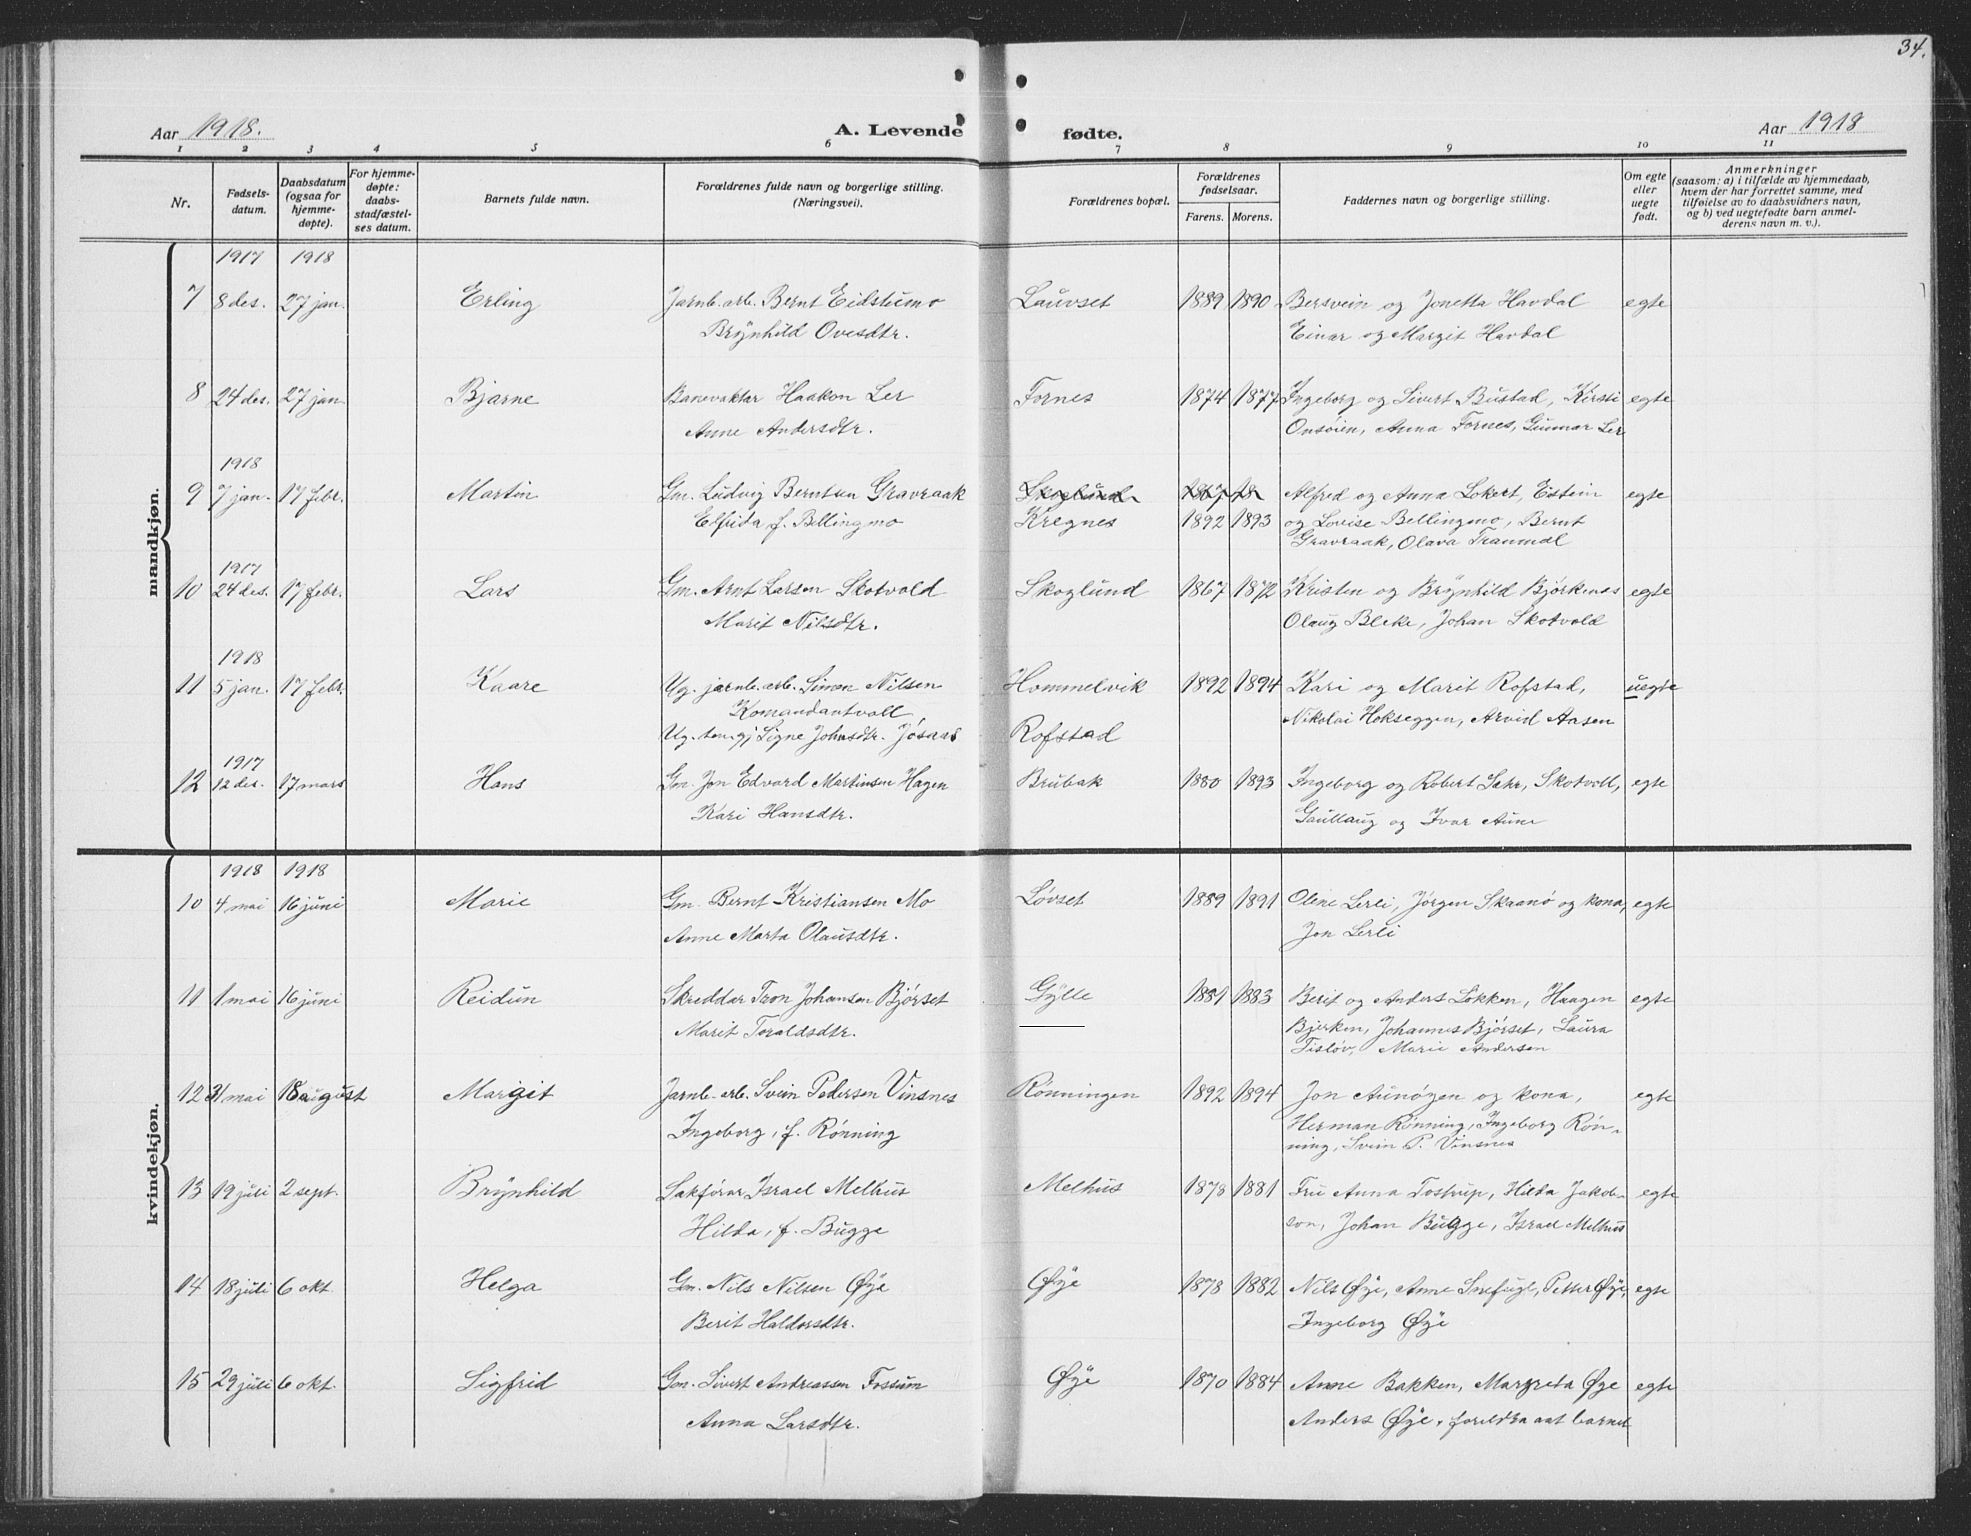 34.
Aar 1918. A. Levende fødte. Aar 1918
1 2 3 4 5 6 7 8 9 10 11
Nr. Fødsels-datum. Daabsdatum (ogsaa for hjemme-døpte). For hjemme-døpte: daabs-stadfæstel-ses datum. Barnets fulde navn. Forældrenes fulde navn og borgerlige stilling. (Næringsvei). Forældrenes bopæl. Forældrenes fødselsaar. Farens. Morens. Faddernes navn og borgerlige stilling. Om egte eller uegte født. Anmerkninger (saasom: a) i tilfælde av hjemmedaab, hvem der har forrettet samme, med tilføielse av to daabsvidners navn, og b) ved uegtefødte barn anmel-derens navn m. v.).
mandkjøn.
1917 1918
7 8 des. 27 jan. Erling Jarnb. arb. Bernt Eidstumo Lauvset 1889 1890 Bersvein og Jonetta Havdal egte
Brynhild Ovesdtr. Einar og Margit Havdal
8 24 des. 27 jan. Bjarne Banevaktar Haakon Ler Fornes 1874 1877 Ingeborg og Sivert Bustad, Kirsti egte
Anne Andersdtr. Onsøien, Anna Fornes, Gunnar Ler
1918
9 7 jan. 17 febr. Martin Gm. Ludvig Berntsen Gravraak Skoglund 1867 Alfred og Anna Lokert, Estein egte
Elfrida, f. Bellingmo Kregnes 1892 1893 og Lovise Bellingmo, Bernt
Gravraak, Olava Traumdl
1917
10 24 des. 17 febr. Lars Gm. Arnt Larsen Skotvold Skoglund 1867 1872 Kristen og Brynhild Bjørkenes egte
Marit Nilsdtr. Olaug Bleke, Johan Skotvold
1918
11 5 jan. 17 febr. Kaare Ug. jarnb. arb. Simon Nilsen Hommelvik 1892 1894 Kari og Marit Rofstad, uegte
Komandantvoll Nikolai Hokseggen, Arvid Aasen
Ug. Signe Johnsdtr. Jøsaas Rofstad
1917
12 12 des. 17 mars Hans Gm. Jon Edvard Martinsen Hagen Brubak 1880 1893 Ingeborg og Robert Sahr, Skotvoll, egte
Kari Hansdtr. Gaullaug og Ivar Aune
kvindekjøn.
1918 1918
10 4 mai 16 juni Marie Gm. Bernt Kristiansen Mo Løvset 1889 1891 Oline Lerli, Jørgen Skaanø og kona, egte
Anne Marta Olausdtr. Jon Lerli
11 1 mai 16 juni Reidun Skreddar Tron Johansen Bjørset Gylle 1881 1883 Berit og Anders Løkken, Haagen egte
Marit Toraldsdtr. Bjerken, Johannes Bjørset, Laura
Tisløv, Marie Andersen
12 31 mai 18 august Margit Jarnb. arb. Svein Pedersen Vinsnes Rønningen 1892 1894 Jon Aunøgen og kona, egte
Ingeborg, f. Rønning Herman Rønning, Ingeborg Røn-
ning, Svein P. Vinsnes
13 19 juli 2 sept. Brynhild Sakførar Israel Melhus Melhus 1878 1881 Fru Anna Tostrup, Hilda Jakob- egte
Hilda, f. Bugge son, Johan Bugge, Israel Melhus
14 18 juli 6 okt. Helga Gm. Nils Nilsen Øye Øye 1878 1882 Nils Øye, Anne Snefugl, Petter Øye, egte
Berit Haldorsdtr. Ingeborg Øye
15 29 juli 6 okt. Sigfrid Gm. Sivert Andreassen Fossum Øye 1870 1884 Anne Bakken, Margreta Øye egte
Anna Larsdtr. Anders Øye, foreldra aat barnet